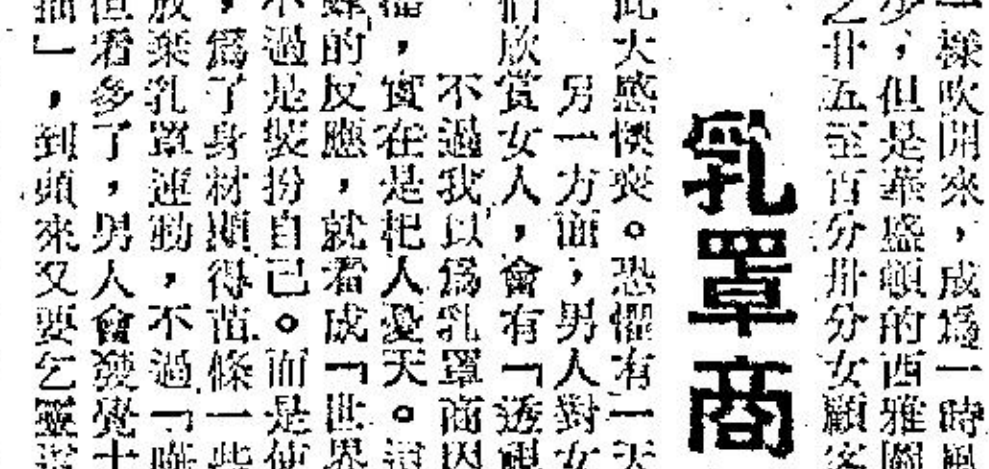 一樣吹開來，成爲一時風
少，但是華盛頓的西雅圖
之廿五至百分卅分女顧客
乳罩商
此大感懊喪。恐懼有一天
另一方面，男人對女
們欣賞女人，會有「透視
不過我以爲乳罩商因
，實在是杞人憂天。這
的反應，就看成「世界
不過是裝扮自己。而是使
，爲了身材顯得苗條一些
放棄乳罩運動，不過「噃
但看多了，男人會發覺十
」，到頭來又要乞靈